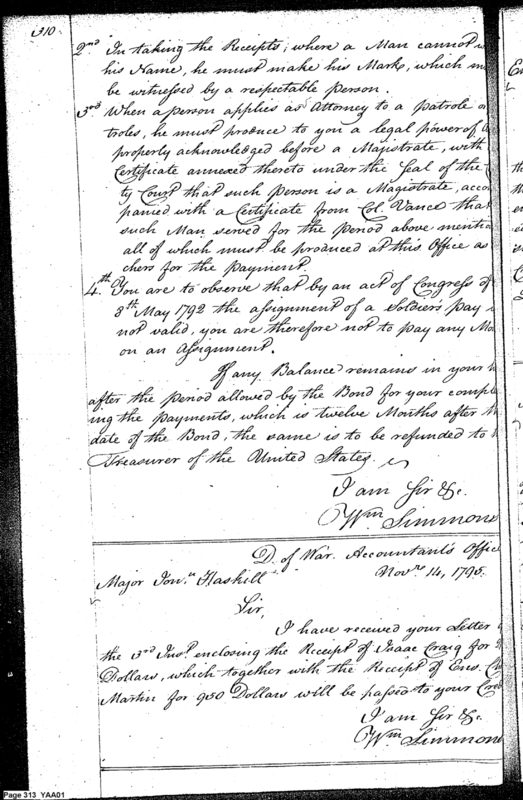 310.
2nd In taking the Receipts; where a Man cannot
his Name, he must make his Mark, which
be witnessed by a respectable person.
3rd When a person applies as Attorney to a patrole or
troles, he must produce to you a legal power of
properly acknowledged before a Magistrate, with
Certificate annexed thereto under the Seal of the
ty Court that such person is a Magistrate, acco
panied with a Certificate from Col. Vance that
such Man served for the period above mentio
all of which must be produced at this Office as
chers for the payment.
4th You are to observe that by an act of Congress of
8th May 1792 the assignment of a Soldiers pay
not valid, you are therefore not to pay any Mo
on an Assignment.
If any Balance remains in your
after the period allowed by the Bond for your compl
ing the payments, which is twelve Months after
date of the Bond, the same is to be refunded to
Treasurer of the United States.
I am Sir &c.
Wm Simmons
D. of War. Accountant's Office
Major Jona. Haskill Novr. 14, 1795.
Sir,
I have received your Letter
the 3rd Inst. enclosing the Receipt of Isaac Craig for
Dollars, which together with the Receipt of Ens.
Martin for 950 Dollars will be passed to your Cred
I am Sir &c.
Wm Simmons
Page 313 YAA01